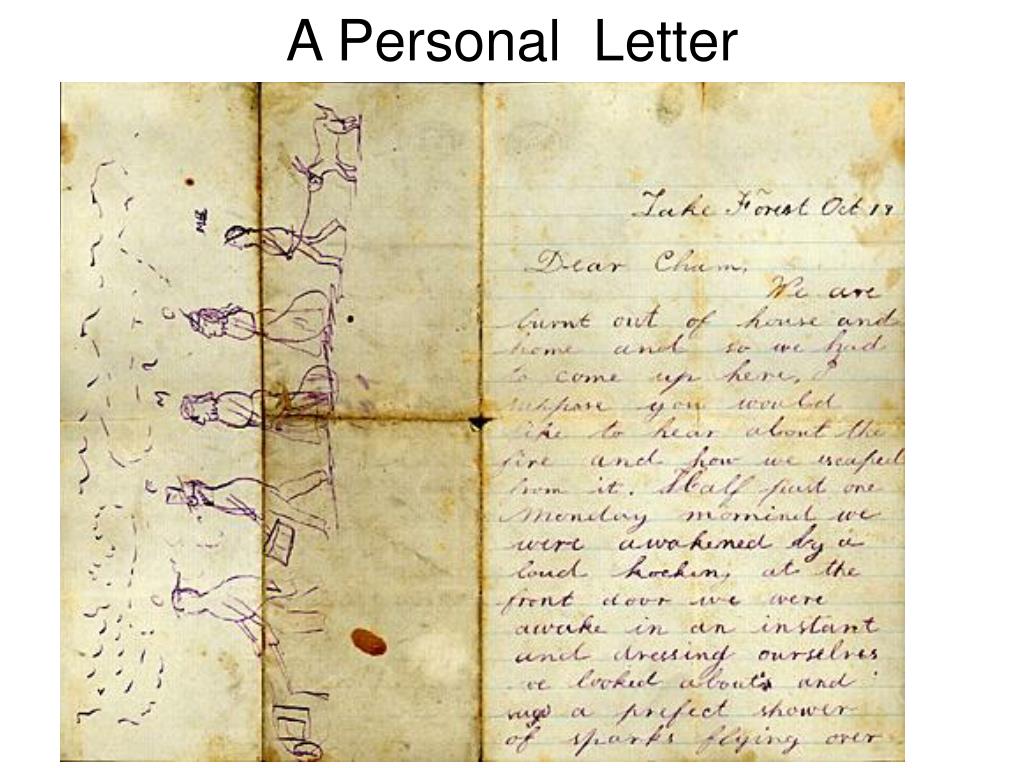 A Personal Letter
Lake Forest Oct 19
Dear Chum,
We are
burnt out of house and
home and so we had
to come up here, I
suppose you would
like to hear about the
fire and how we escaped
from it. Half past one
Monday mornind we
were awakened by a
loud kockin, at the
front door we were
awake in an instant
and dressing ourselves
we looked about and
saw a prefect shower
of sparks flying over